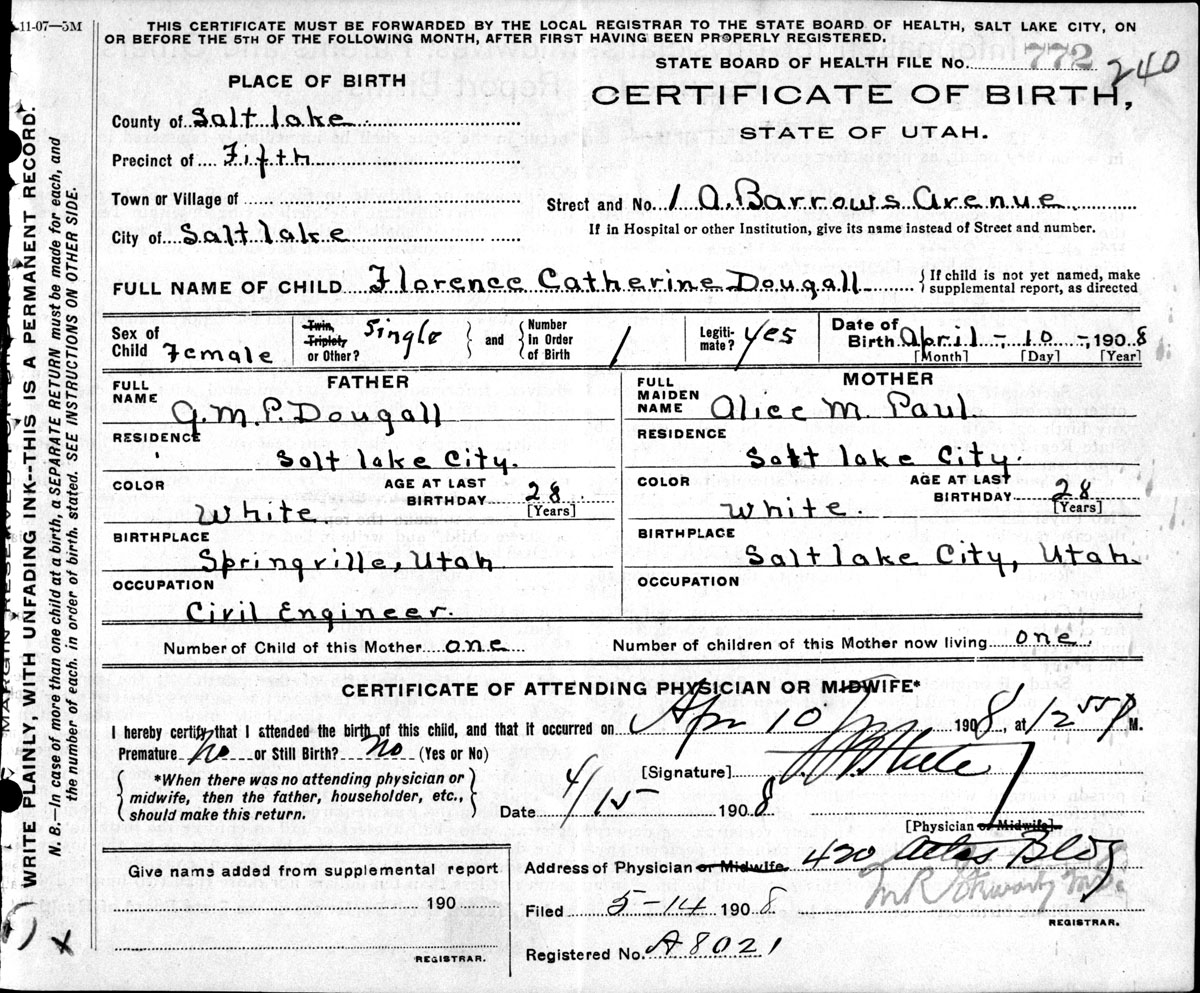 11-07—5M
THIS CERTIFICATE MUST BE FORWARDED BY THE LOCAL REGISTRAR TO THE STATE BOARD OF HEALTH, SALT LAKE CITY, ON
OR BEFORE THE 5TH OF THE FOLLOWING MONTH, AFTER FIRST HAVING BEEN PROPERLY REGISTERED.
STATE BOARD OF HEALTH FILE No. 772 240
PLACE OF BIRTH
CERTIFICATE OF BIRTH,
STATE OF UTAH.
County of Salt lake
Precinct of Fifth
Town or Village of
Street and No. 1 A. Barrows Avenue
City of Salt lake
If in Hospital or other Institution, give its name instead of Street and number.
FULL NAME OF CHILD Florence Catherine Dougall { If child is not yet named, make
supplemental report, as directed
Sex of Child Female
Twin, Triplet, or Other? Single } and { Number In Order of Birth 1
Legiti-mate? Yes
Date of Birth April - 10 -, 1908
[Month] [Day] [Year]
FATHER
FULL NAME
G.M.P. Dougall
RESIDENCE
Salt lake City.
COLOR
White
AGE AT LAST BIRTHDAY 28
[Years]
BIRTHPLACE
Springville, Utah
OCCUPATION
Civil Engineer.
MOTHER
FULL MAIDEN NAME
Alice M. Paul.
RESIDENCE
Salt lake City.
COLOR
White.
AGE AT LAST BIRTHDAY 28
[Years]
BIRTHPLACE
Salt lake City, Utah.
OCCUPATION
Number of Child of this Mother one
Number of children of this Mother now living one
CERTIFICATE OF ATTENDING PHYSICIAN OR MIDWIFE*
I hereby certify that I attended the birth of this child, and that it occurred on Apr 10 1908, at 12 55 P M.
Premature No or Still Birth? No (Yes or No)
{ *When there was no attending physician or
midwife, then the father, householder, etc.,
should make this return. }
[Signature]
Date 4/15 1908
[Physician or Midwife]
Give name added from supplemental report
190
REGISTRAR.
Address of Physician or Midwife. 420 Bldg
Filed 5-14 1908
REGISTRAR.
Registered No. A8021
MARGIN RESERVED FOR BINDING
WRITE PLAINLY, WITH UNFADING INK--THIS IS A PERMANENT RECORD.
N. B.—In case of more than one child at a birth, a SEPARATE RETURN must be made for each, and
the number of each, in order of birth, stated. SEE INSTRUCTIONS ON OTHER SIDE.